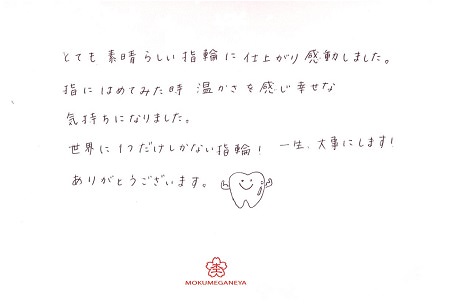 とても素晴らしい指輪に仕上がり感動しました。
指にはめてみた時 温かさを感じ幸せな
気持ちになりました。
世界に1つだけしかない指輪! 一生、大事にします!
ありがとうございます。
MOKUMEGANEYA